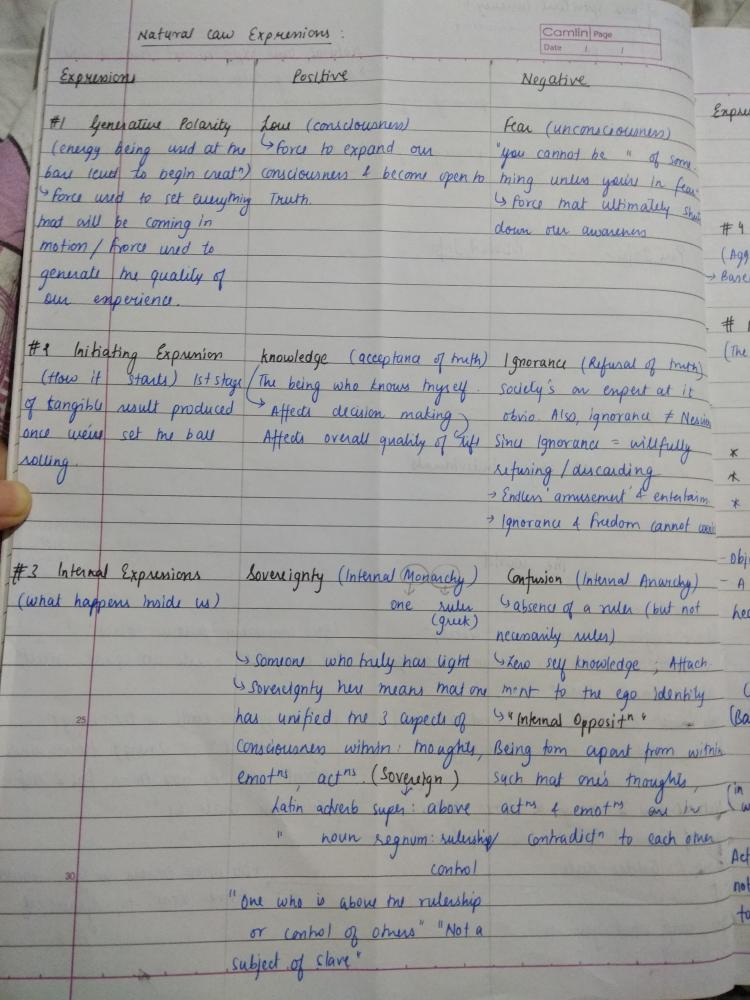 Natural Law Expressions :
Camlin Page
Date / /
Expressions Positive Negative
#1 Generative Polarity
(energy being used at the
base level to begin creatn)
↳ Force used to set everything
that will be coming in
motion / Force used to
generate the quality of
our experience.
Love (consciousness)
↳ Force to expand our
consciousness & become open to
Truth.
Fear (unconsciousness)
"you cannot be " of some-
thing unless you're in fear
↳ Force that ultimately shuts
down our awareness
#2 Initiating Expression
(How it starts) 1st stage
of tangible result produced
once we've set the ball
rolling.
Knowledge (acceptance of truth)
The being who knows thyself.
→ Affects decision making
Affects overall quality of life
Ignorance (Refusal of truth)
Society's an expert at it
obvio. Also, ignorance ≠
Since Ignorance = willfully
refusing / discarding
→ Endless 'amusement' &
→ Ignorance & freedom cannot
#3 Internal Expressions
(what happens inside us)
Sovereignty (Internal Monarchy)
one ruler
(greek)
↳ Someone who truly has light
↳ Sovereignty here means that one
has unified the 3 aspects of
Consciousness within: thoughts,
emotns, actns. (Sovereign)
Latin adverb super: above
" noun regnum: rulership/
control
"One who is above the rulership
or control of others" "Not a
subject of slave"
Confusion (Internal Anarchy)
↳ absence of a ruler (but not
necessarily rules)
↳ Zero self knowledge ; Attach-
ment to the ego identity
↳ "Internal Oppositn"
Being torn apart from within
such that one's thoughts,
actns & emotns are in
contradictn to each other
25
30
#4
(Agg
→ Base
#
(The
*
*
*
- Obj
- A
hea
(Ba
(in
w
Act
not
to